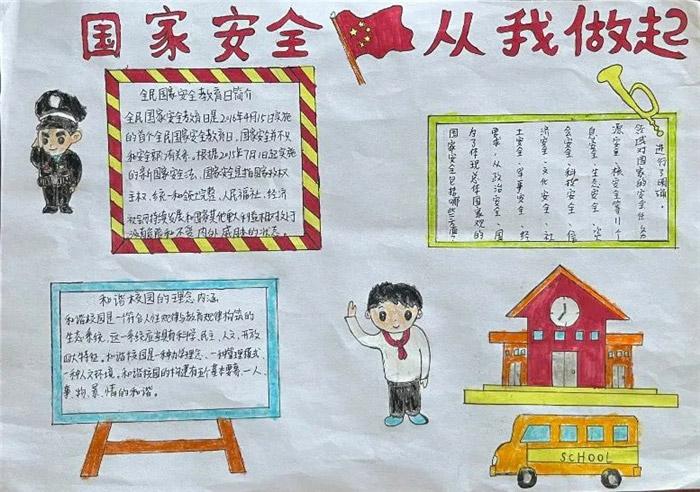 国家安全 从我做起
全民国家安全教育日简介
全民国家安全教育日是2016年4月15日实施
的首个全民国家安全教育日,国家安全并不
和安全职有关系。根据2015年7月1日起实施
的新国家安全法,国家安全是指国家政权
主权、统一和领土完整、人民福祉、经济
社会可持续发展和国家其他重大利益相对处于
没有危险和不受内外威胁的状态。
国家安全包括哪些方面?
为了体现总体国家观的
要求,从政治安全、国
土安全、军事安全、经
济安全、文化安全、社
会安全、科技安全、信
息安全、生态安全、资
源安全、核安全等11个
领域对国家的安全任务
进行了明确。
和谐校园的理念内涵
和谐校园是一个符合人性规律与教育规律构筑的
生态系统,这一系统应当具有科学、民主、人文、开放
四大特征。和谐校园是一种办学理念、一种管理模式、
一种人文环境。和谐校园的构建有五个基本要素、一人、
事、物、景、情的和谐。
SCHOOL